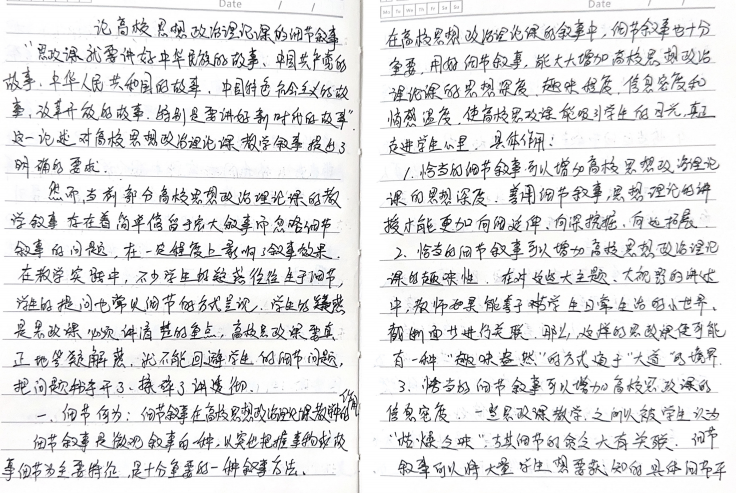 Date / /
论高校思想政治理论课的细节叙事
"思政课就要讲好中华民族的故事、中国共产党的
故事、中华人民共和国的故事、中国特色社会主义的故
事、改革开放的故事、特别是要讲好新时代的故事"
这一论述对高校思想政治理论课教学叙事提出了
明确的要求。
然而当前部分高校思想政治理论课的教
学叙事存在着简单停留于宏大叙事而忽略细节
叙事的问题,在一定程度上影响了叙事效果。
在教学实践中,不少学生的疑惑往往生于细节,
学生的提问也常以细节的方式呈现。学生的疑惑
是思政课必须讲清楚的重点,高校思政课要真
正地答疑解惑,就不能回避学生的细节问题,
把问题掰开了、揉碎了讲透彻。
一、细节何为:细节叙事在高校思想政治理论课教学中的价
细节叙事是微观叙事的一种,以突出把握事物或故
事细节为主要特征,是十分重要的一种叙事方法。
Mo Tu We Th Fr Sa Su
Date / /
在高校思想政治理论课的叙事中,细节叙事也十分
重要,用好细节叙事,能大大增加高校思想政治
理论课的思想深度、趣味程度、信息密度和
情感温度,使高校思政课能吸引学生的目光,真正
走进学生心里。具体作用:
1. 恰当的细节叙事可以增加高校思想政治理论
课的思想深度。善用细节叙事,思想理论的讲
授才能更加向细延伸、向深挖掘、向远拓展。
2. 恰当的细节叙事可以增加高校思想政治理论
课的趣味性。在对这些大主题、大视野的讲述
中,教师如果能善于将学生日常生活的小世界、
截断面也进行关联,那么,这样的思政课便可能
有一种"趣味盎然"的方式通于"大道"的境界。
3. 恰当的细节叙事可以增加高校思政课的
信息密度 一些思政课教学之所以被学生认为
"枯燥乏味",与其细节的贫乏大有关联。细节
叙事可以将大量学生想要获知的具体细节平